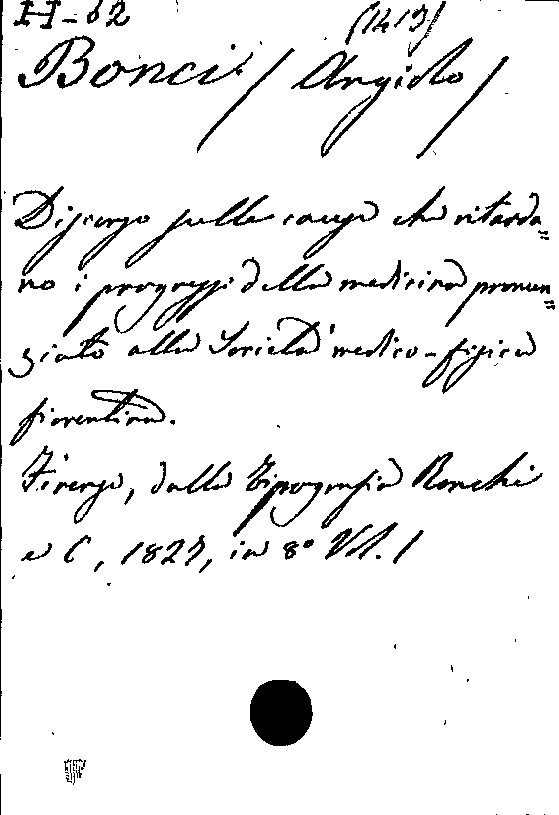 H-62 (1419)
Bonci / Angiolo /
Discorso sulle cause che ritarda=
no i progressi della medicina pronun=
ziato alla Società medico-fisica
fiorentina.
Firenze, dalla Tipografia Ronchi
e C, 1827, in 8° Vol. 1